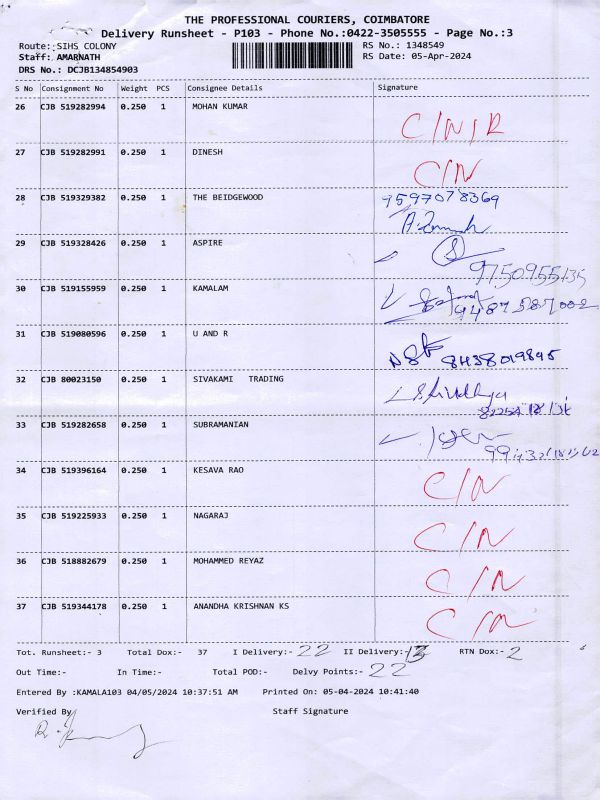 THE PROFESSIONAL COURIERS, COIMBATORE
Delivery Runsheet - P103 - Phone No.:0422-3505555 - Page No.:3
Route: SIHS COLONY RS No.: 1348549
Staff: AMARNATH RS Date: 05-Apr-2024
DRS No.: DCJB134854903
S No Consignment No Weight PCS Consignee Details Signature
26 CJB 519282994 0.250 1 MOHAN KUMAR C/N/R
27 CJB 519282991 0.250 1 DINESH C/N
28 CJB 519329382 0.250 1 THE BEIDGEWOOD 9597078369
29 CJB 519328426 0.250 1 ASPIRE 9750955135
30 CJB 519155959 0.250 1 KAMALAM 9487587002
31 CJB 519080596 0.250 1 U AND R 8438019895
32 CJB 80023150 0.250 1 SIVAKAMI TRADING
33 CJB 519282658 0.250 1 SUBRAMANIAN
34 CJB 519396164 0.250 1 KESAVA RAO C/N
35 CJB 519225933 0.250 1 NAGARAJ C/N
36 CJB 518882679 0.250 1 MOHAMMED REYAZ C/N
37 CJB 519344178 0.250 1 ANANDHA KRISHNAN KS C/N
Tot. Runsheet:- 3 Total Dox:- 37 I Delivery:- 22 II Delivery:- 13 RTN Dox:- 2
Out Time:- In Time:- Total POD:- Delvy Points:- 22
Entered By :KAMALA103 04/05/2024 10:37:51 AM Printed On: 05-04-2024 10:41:40
Verified By Staff Signature